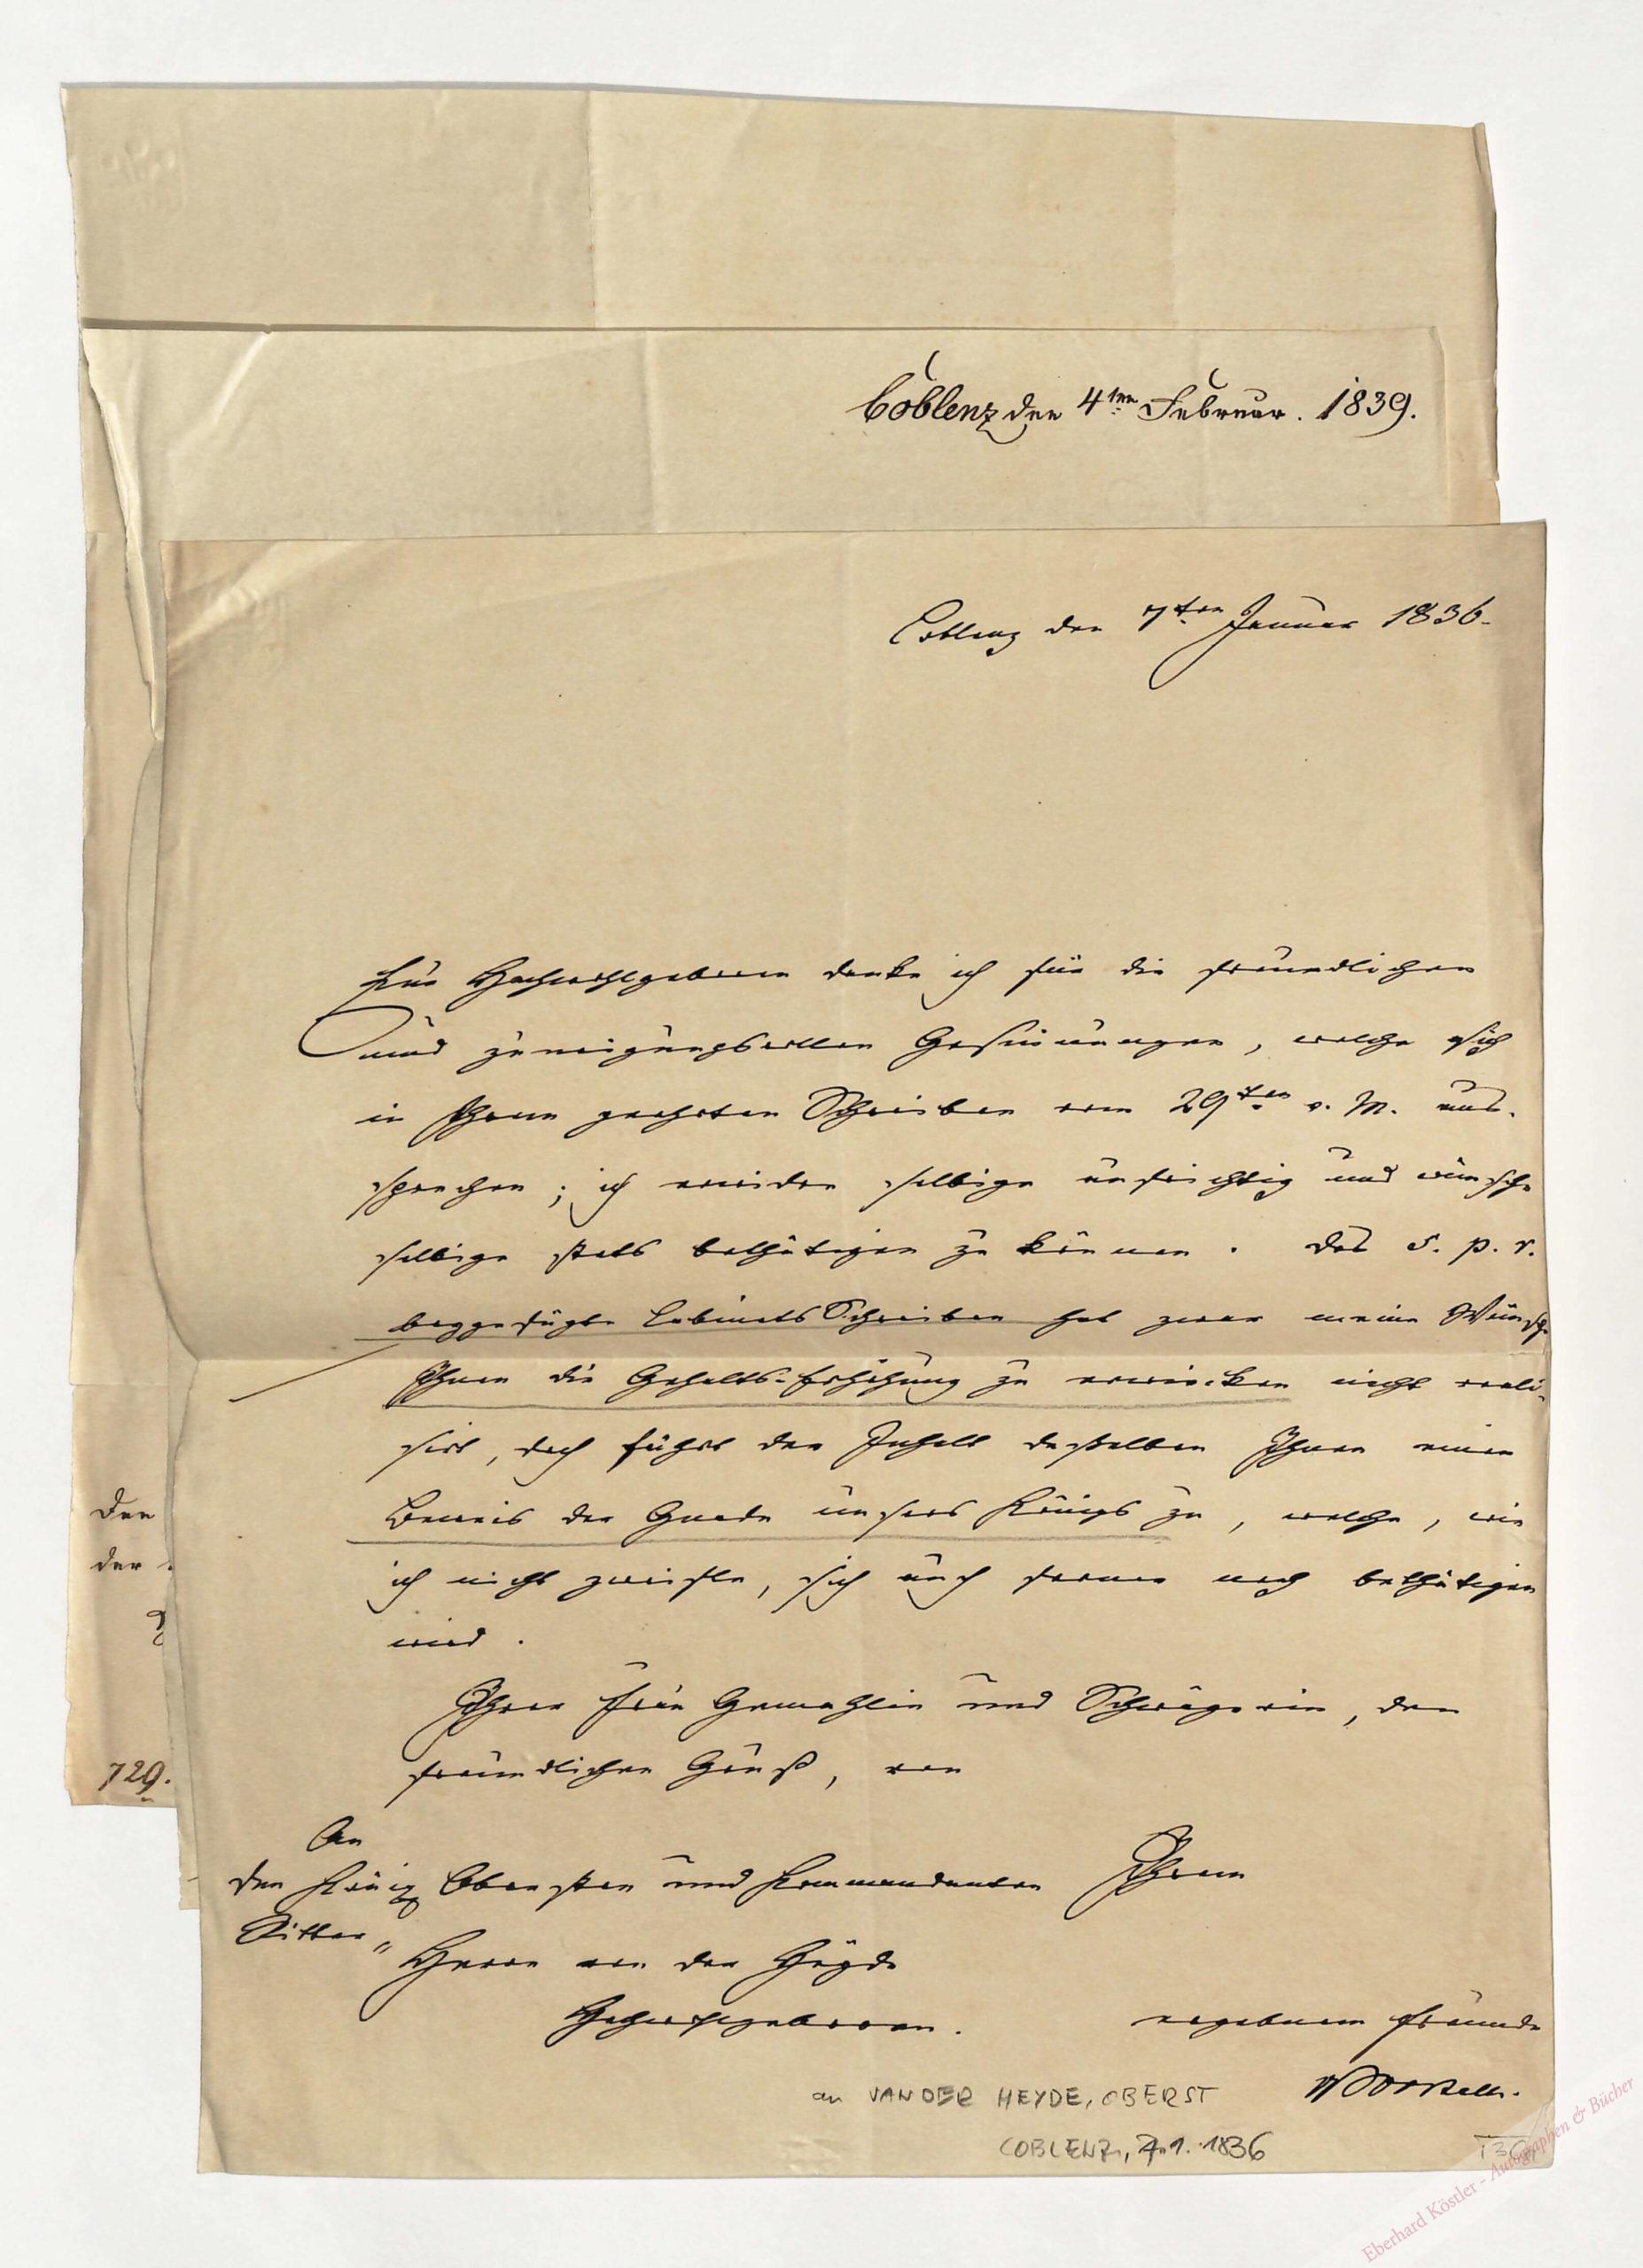 Coblenz den 4ten Februar. 1839.
Coblenz den 7ten Januar 1836.
Eur Hochwohlgeboren danke ich für die freundlichen
und zuneigungsvollen Gesinnungen, welche sich
in Ihrem geehrten Schreiben vom 29ten v. M. aus-
sprechen; ich erwidre selbige aufrichtig und wünsche
selbige stets bethätigen zu können. Das s. p. r.
beygefügte Cabinets Schreiben hat zwar meine Wünsche
Ihnen die Gehalts-Erhöhung zu erwirken nicht reali-
sirt, doch führt der Inhalt desselben Ihnen einen
Beweis der Gnade unsers Königs zu, welche, wie
ich nicht zweifle, sich auch ferner noch bethätigen
wird.
Ihrer Frau Gemahlin und Schwägerin, den
freundlichen Gruß, von
An
den Königl Obersten und Kommandanten
Ritter
Herrn von der Heyde
Hochwohlgeboren.
Ihrem
ergebnen Freunde
vBorstell.
Den
der
729.
an VAN DER HEYDE, OBERST
COBLENZ, 7.1.1836
Eberhard Köstler - Autographen & Bücher